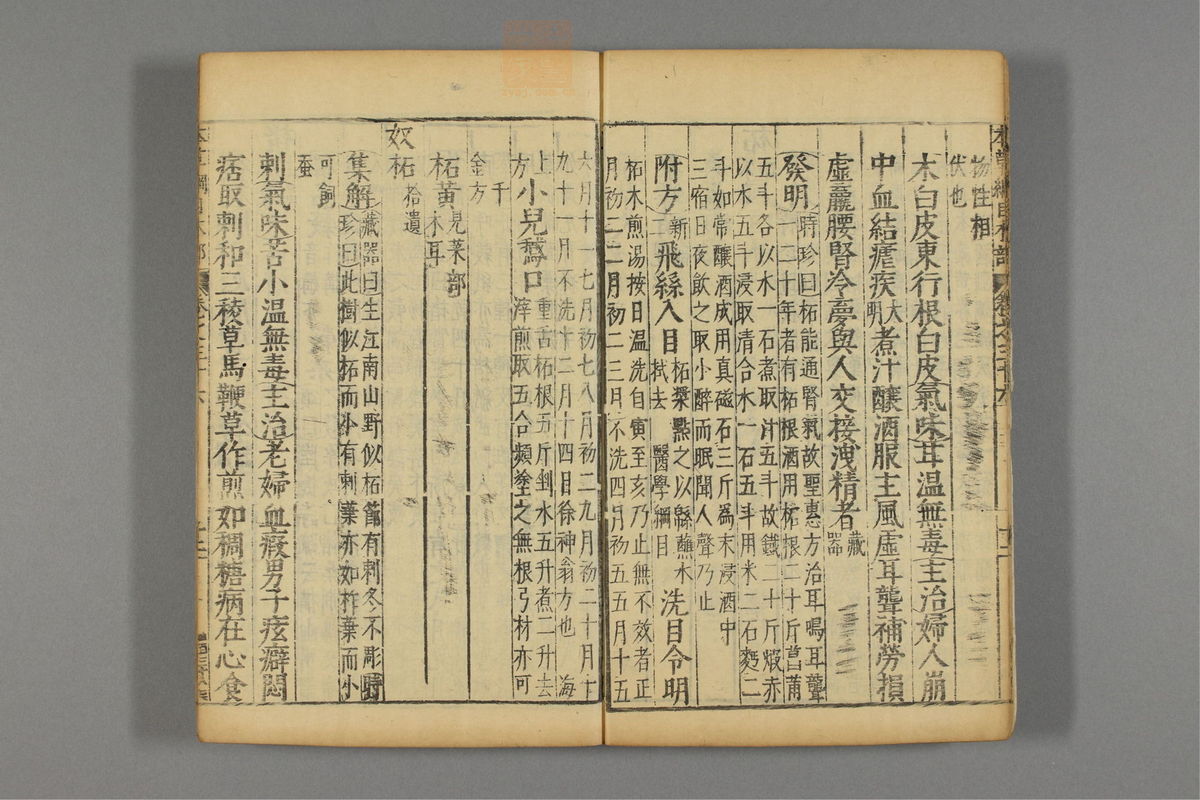 物性相
伏也
木白皮東行根白皮氣味甘溫無毒主治婦人崩
中血結瘧疾大明煮汁釀酒服主風虛耳聾補勞損
虛羸腰腎冷夢與人交接洩精者藏器
發明時珍曰柘能通腎氣故聖惠方治耳鳴耳聾
一二十年者有柘根酒用柘根二十斤菖蒲
五斗各以水一石煮取汁五斗故鐵二十斤煅赤
以水五斗浸取清合水一石五斗用米二石麴二
斗如常釀酒成用真磁石三斤為末浸酒中
三宿日夜飲之取小醉而眠聞人聲乃止
附方新二飛絲入目柘漿點之以綿蘸水
拭去醫學綱目洗目令明
柘木煎湯按日温洗自寅至亥乃止無不效者正
月初二二月初二三月不洗四月初五五月十五
六月十一七月初七八月初二九月初二十月十
九十一月不洗十二月十四日徐神翁方也海
上方小兒鵞口重舌柘根五斤剉水五升煮二升去
滓煎取五合頻塗之無根弓材亦可
千金方
柘黃見菜部木耳
奴柘拾遺
集解藏器曰生江南山野似柘節有刺冬不彫時
珍曰此樹似柘而小有刺葉亦如柞葉而小
可飼
蚕
刺氣味苦小温無毒主治老婦血瘕男子痃癖悶
痞取刺和三稜草馬鞭草作煎如稠糖病在心食